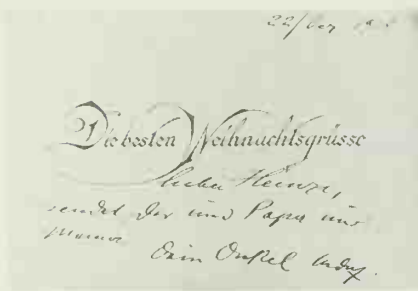 Die besten Weihnachtsgrüsse
Lieber Heinz,
sendet Dir und Papa und
Mama
Dein Onkel